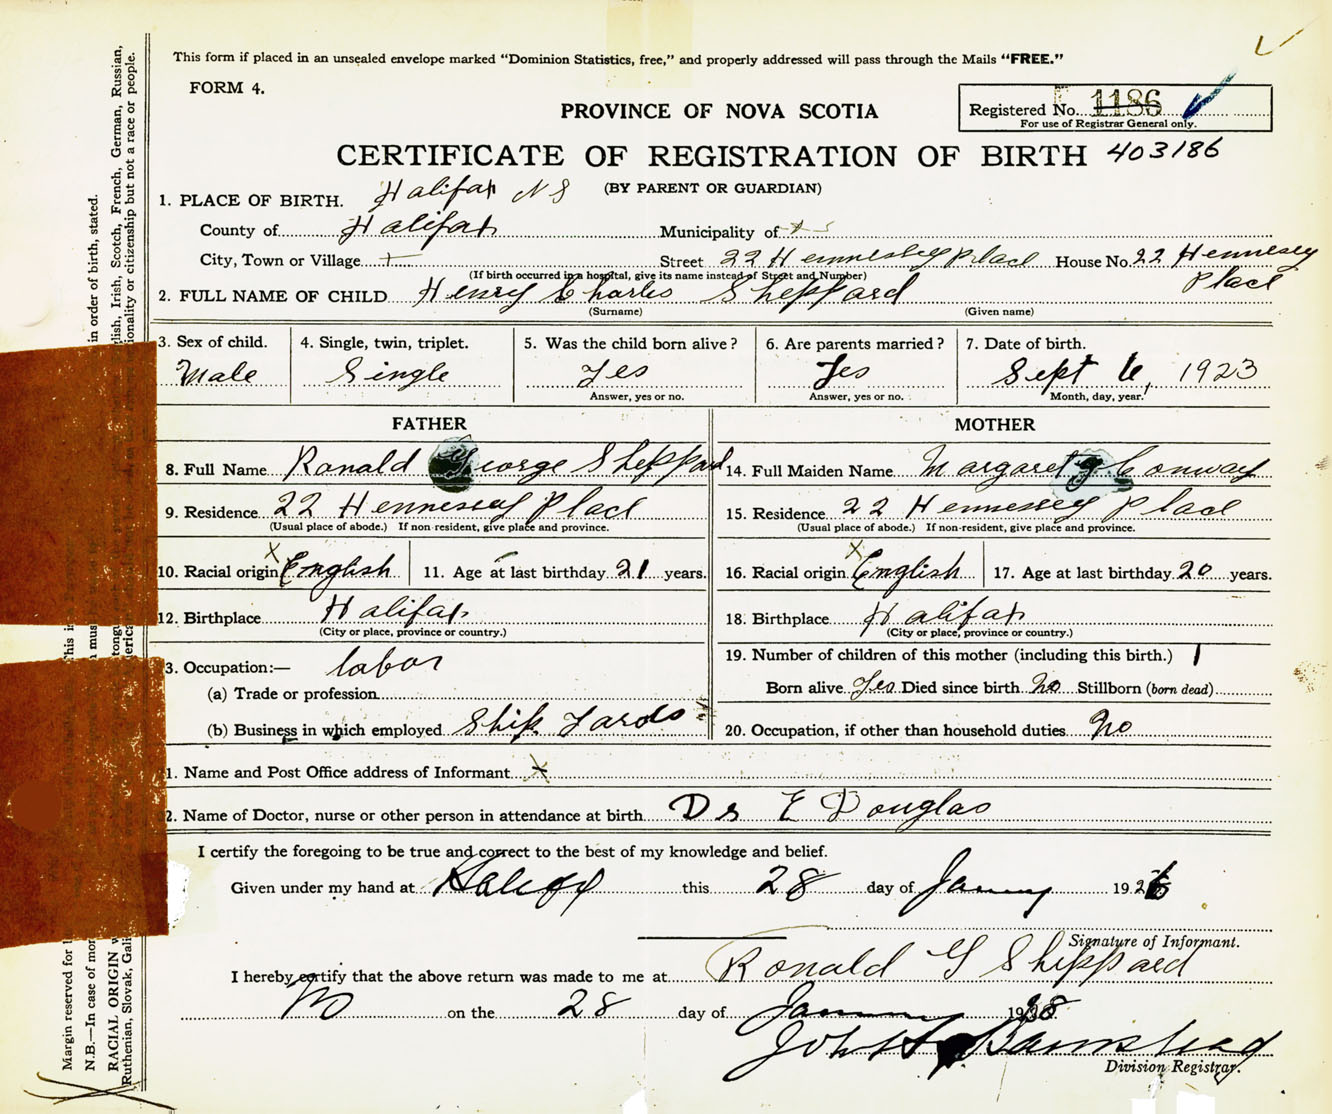 This form if placed in an unsealed envelope marked "Dominion Statistics, free," and properly addressed will pass through the Mails "FREE."
FORM 4.
PROVINCE OF NOVA SCOTIA
Registered No. 1186
For use of Registrar General only.
CERTIFICATE OF REGISTRATION OF BIRTH 403186
(BY PARENT OR GUARDIAN)
1. PLACE OF BIRTH. Halifax N S
County of Halifax Municipality of
City, Town or Village Street 22 Hennessey Place House No. 22 Hennesey Place
(If birth occurred in a hospital, give its name instead of Street and Number)
2. FULL NAME OF CHILD Henry Charles Sheppard
(Surname) (Given name)
3. Sex of child. 4. Single, twin, triplet. 5. Was the child born alive? 6. Are parents married? 7. Date of birth.
Male Single Yes Yes Sept 6, 1923
Answer, yes or no. Answer, yes or no. Month, day, year.
FATHER MOTHER
8. Full Name Ranald George Sheppard 14. Full Maiden Name Margaret J Conway
9. Residence 22 Hennessey Place 15. Residence 22 Hennessey Place
(Usual place of abode.) If non-resident, give place and province. (Usual place of abode.) If non-resident, give place and province.
10. Racial origin English 11. Age at last birthday 21 years. 16. Racial origin English 17. Age at last birthday 20 years.
12. Birthplace Halifax 18. Birthplace Halifax
(City or place, province or country.) (City or place, province or country.)
3. Occupation:— labor 19. Number of children of this mother (including this birth.) 1
(a) Trade or profession Born alive Yes Died since birth No Stillborn (born dead)
(b) Business in which employed Ship Yards 20. Occupation, if other than household duties No
1. Name and Post Office address of Informant x
2. Name of Doctor, nurse or other person in attendance at birth Dr E Douglas
I certify the foregoing to be true and correct to the best of my knowledge and belief.
Given under my hand at Halifax this 28 day of January 192
Signature of Informant.
I hereby certify that the above return was made to me at Ronald G Sheppard
on the 28 day of January 19
Division Registrar.
Margin reserved for
N.B.—In case of mor in order of birth, stated.
RACIAL ORIGIN lish, Irish, Scotch, French, German, Russian,
Ruthenian, Slovak, Gali ionality or citizenship but not a race or people.